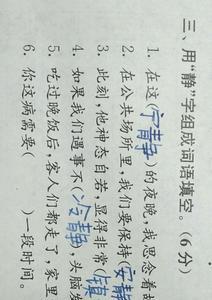 三、用“静”字组成词语填空。(6分)
1. 在这(宁静)的夜晚,我思念着
2. 在公共场所里,我们要保持(安静
3. 此刻,他神态自若,显得非常(镇
4. 如果我们遇事不(冷静),头脑发
5. 吃过晚饭后,客人们都走了,家里
6. 你这病需要( )一段时间。